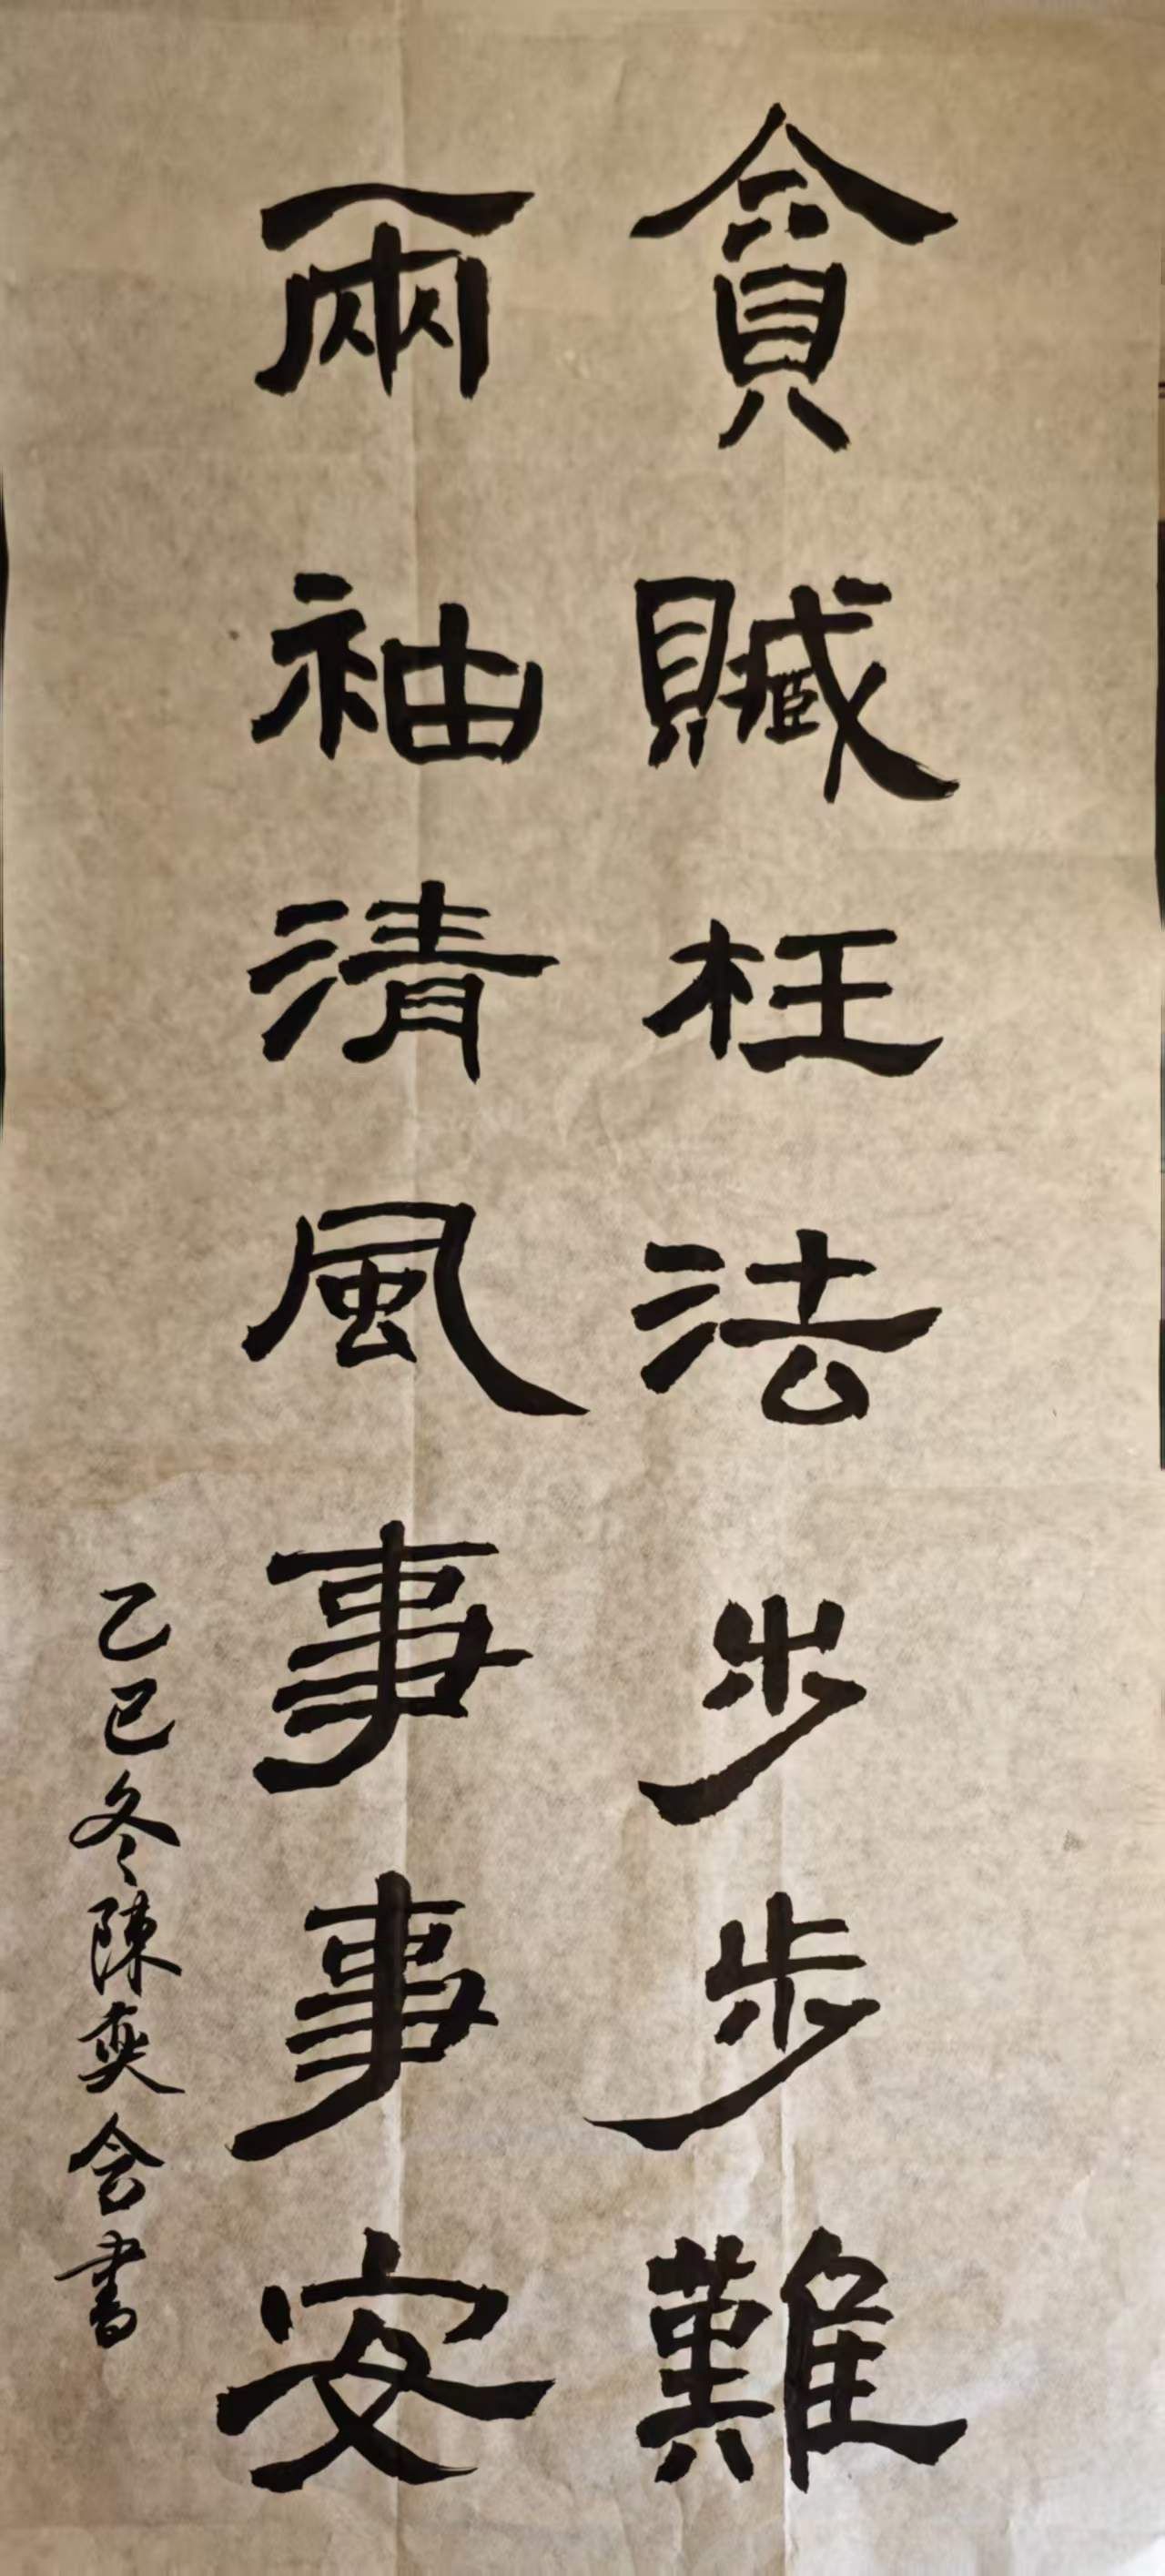 貪贓枉法步步難
兩袖清風事事安
乙巳冬陳奕會書